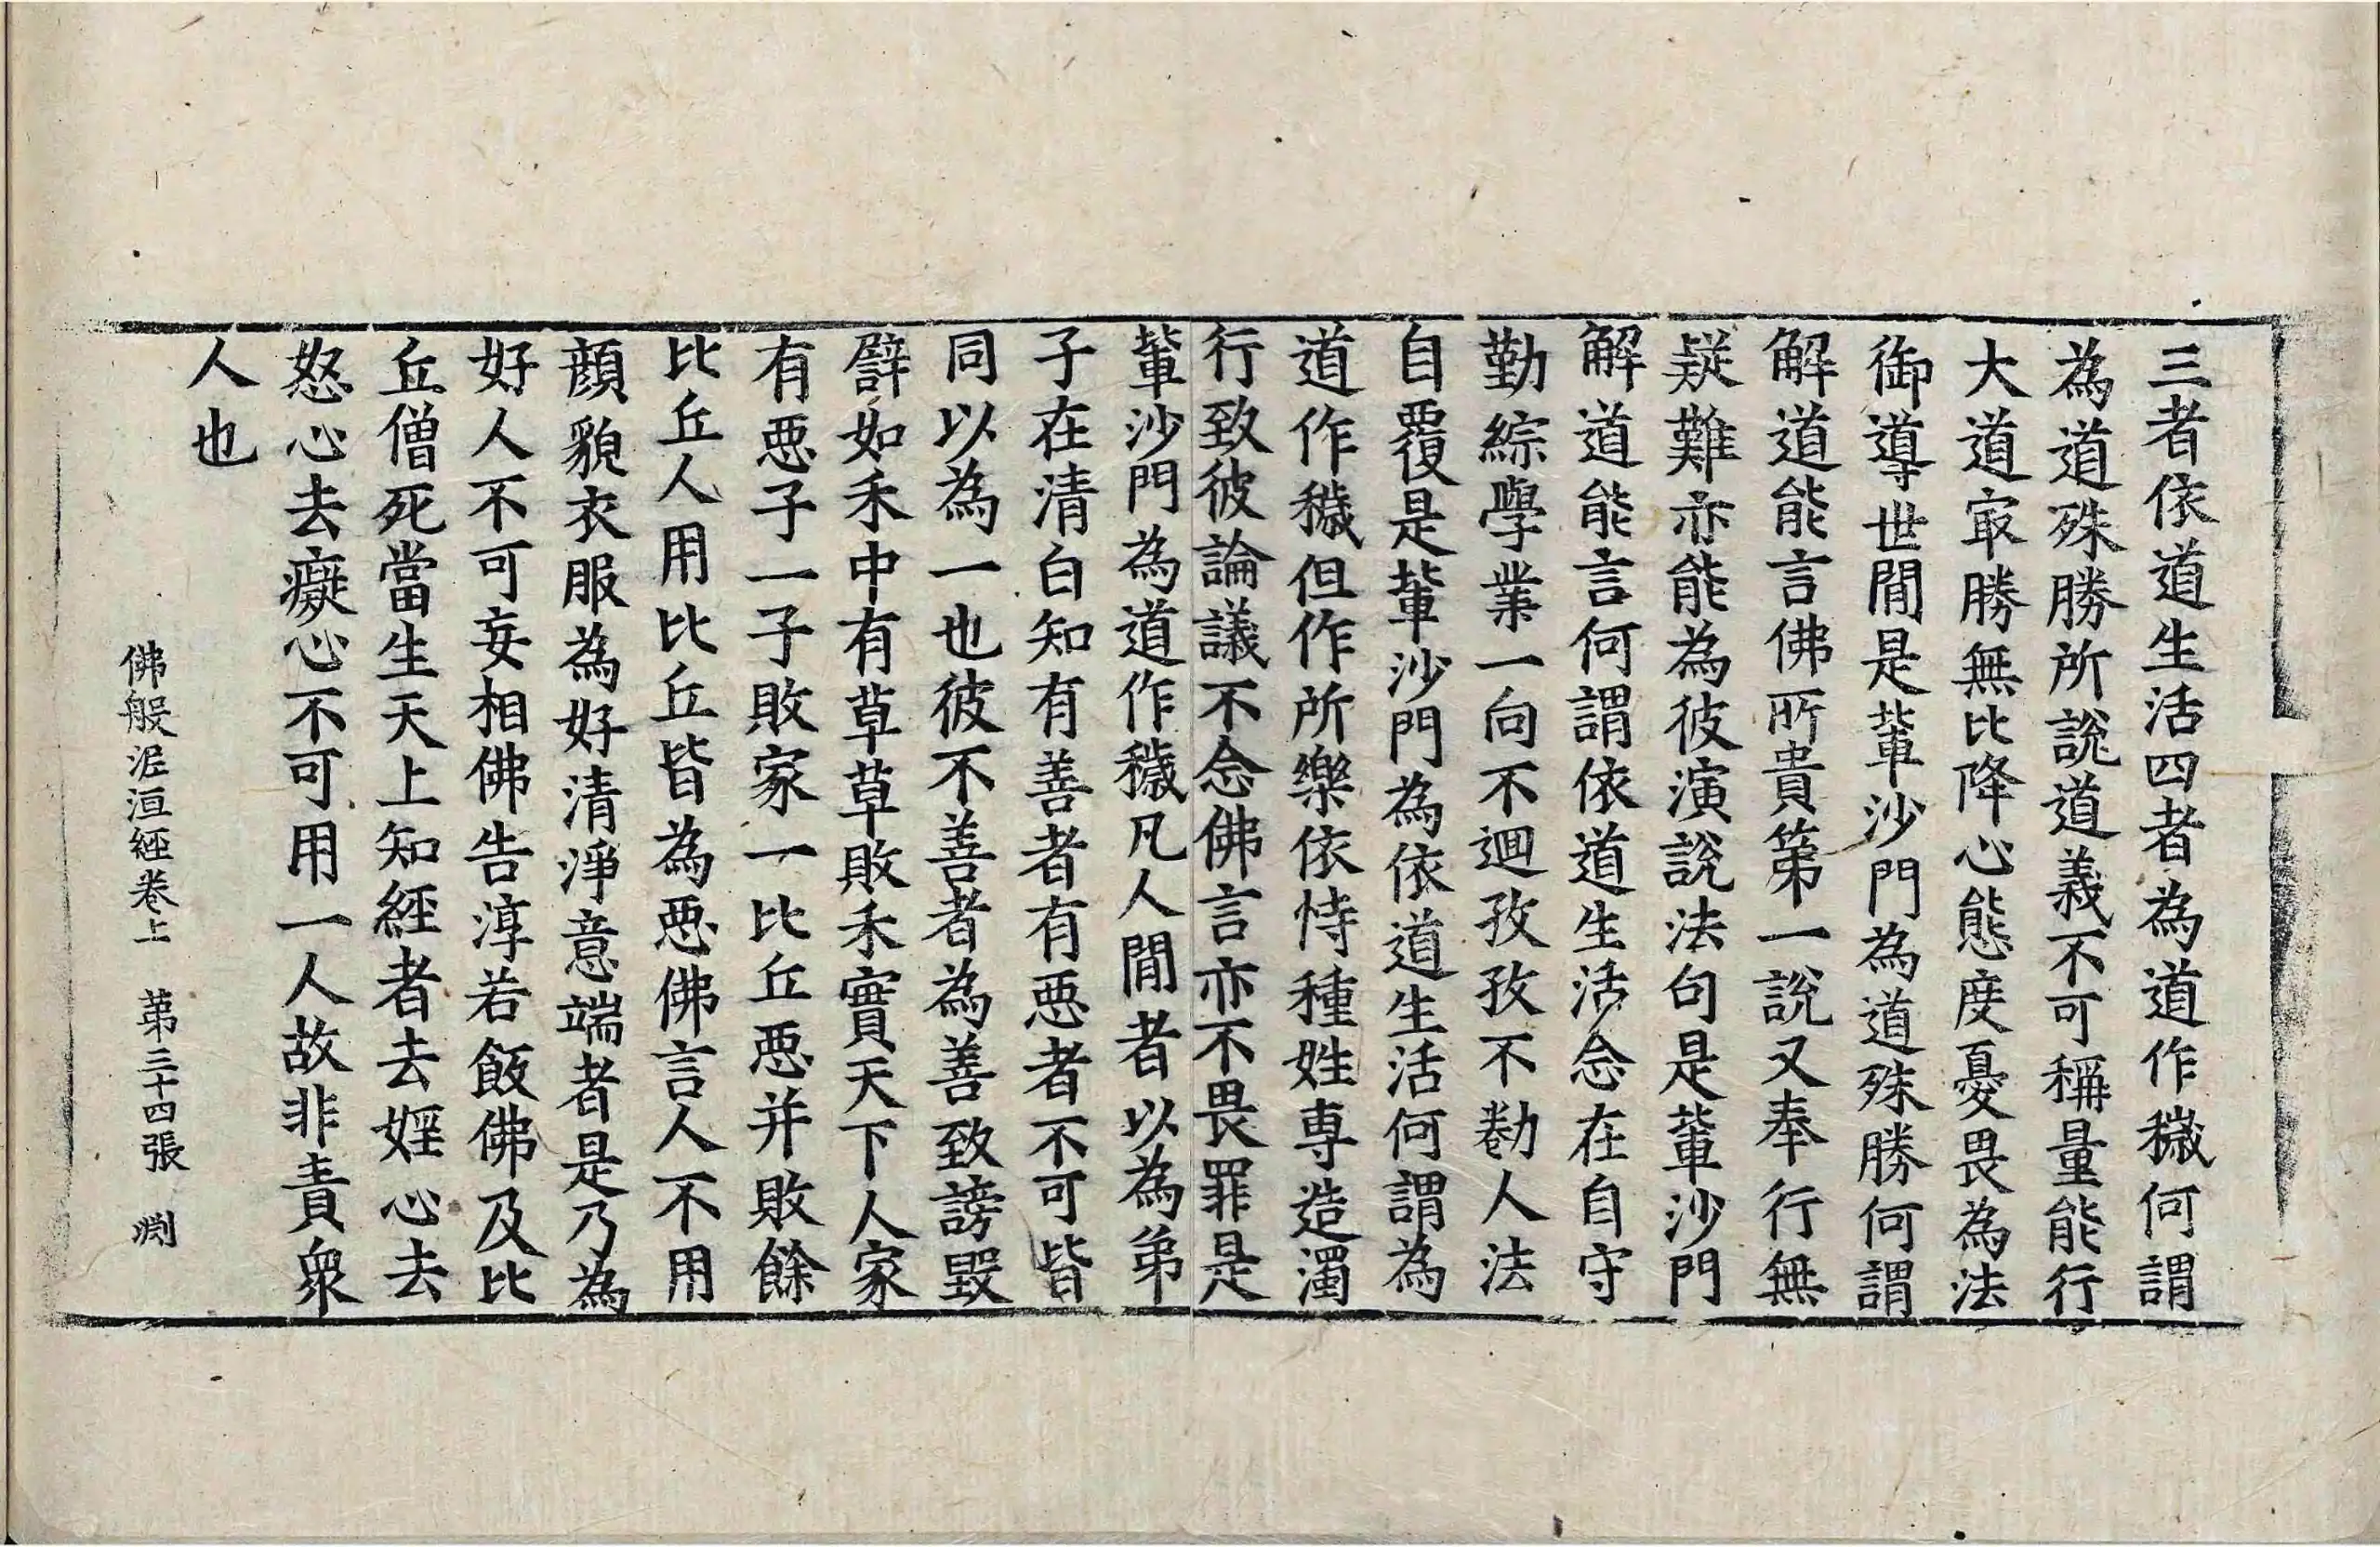 三者依道生活四者為道作穢何謂
為道殊勝所說道義不可稱量能行
大道㝡勝無比降心態度憂畏為法
御導世間是軰沙門為道殊勝何謂
解道能言佛所貴第一說又奉行無
疑難亦能為彼演說法句是軰沙門
解道能言何謂依道生活念在自守
勤綜學業一向不迴孜孜不勌人法
自覆是軰沙門為依道生活何謂為
道作穢但作所樂依恃種姓專造濁
行致彼論議不念佛言亦不畏罪是
軰沙門為道作穢凡人間者以為弟
子在清白知有善者有惡者不可皆
同以為一也彼不善者為善致謗毀
譬如禾中有草草敗禾實天下人家
有惡子一子敗家一比丘惡并敗餘
比丘人用比丘皆為惡佛言人不用
顔貌衣服為好清淨意端者是乃為
好人不可妄相佛告淳若飯佛及比
丘僧死當生天上知經者去婬心去
怒心去癡心不可用一人故非責衆
人也
佛般泥洹經卷上 第三十四張 渊